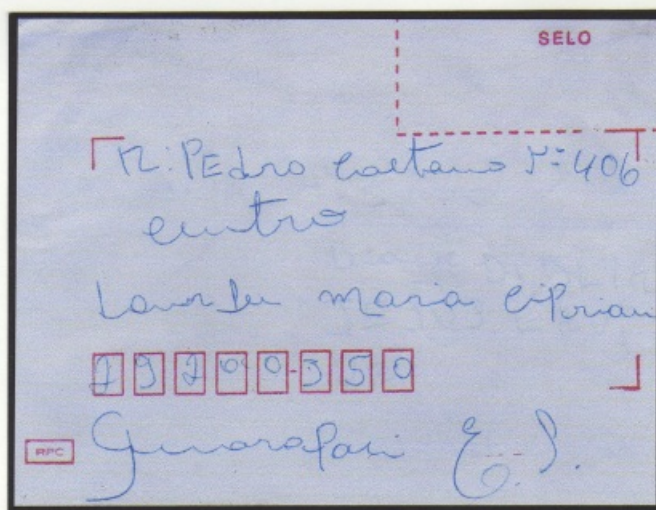 SELO
R: PEdro Caetano Nº 406
centro
Lourdes maria Ciprian
29200-350
Guarapari E.S.